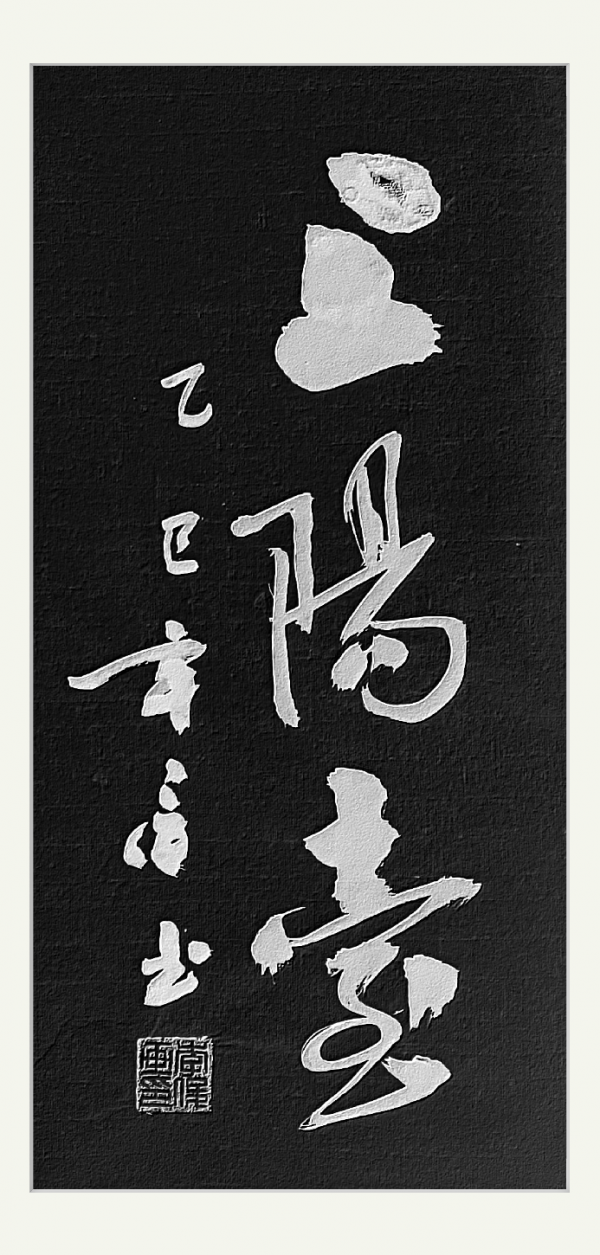 上陽臺
乙巳年书